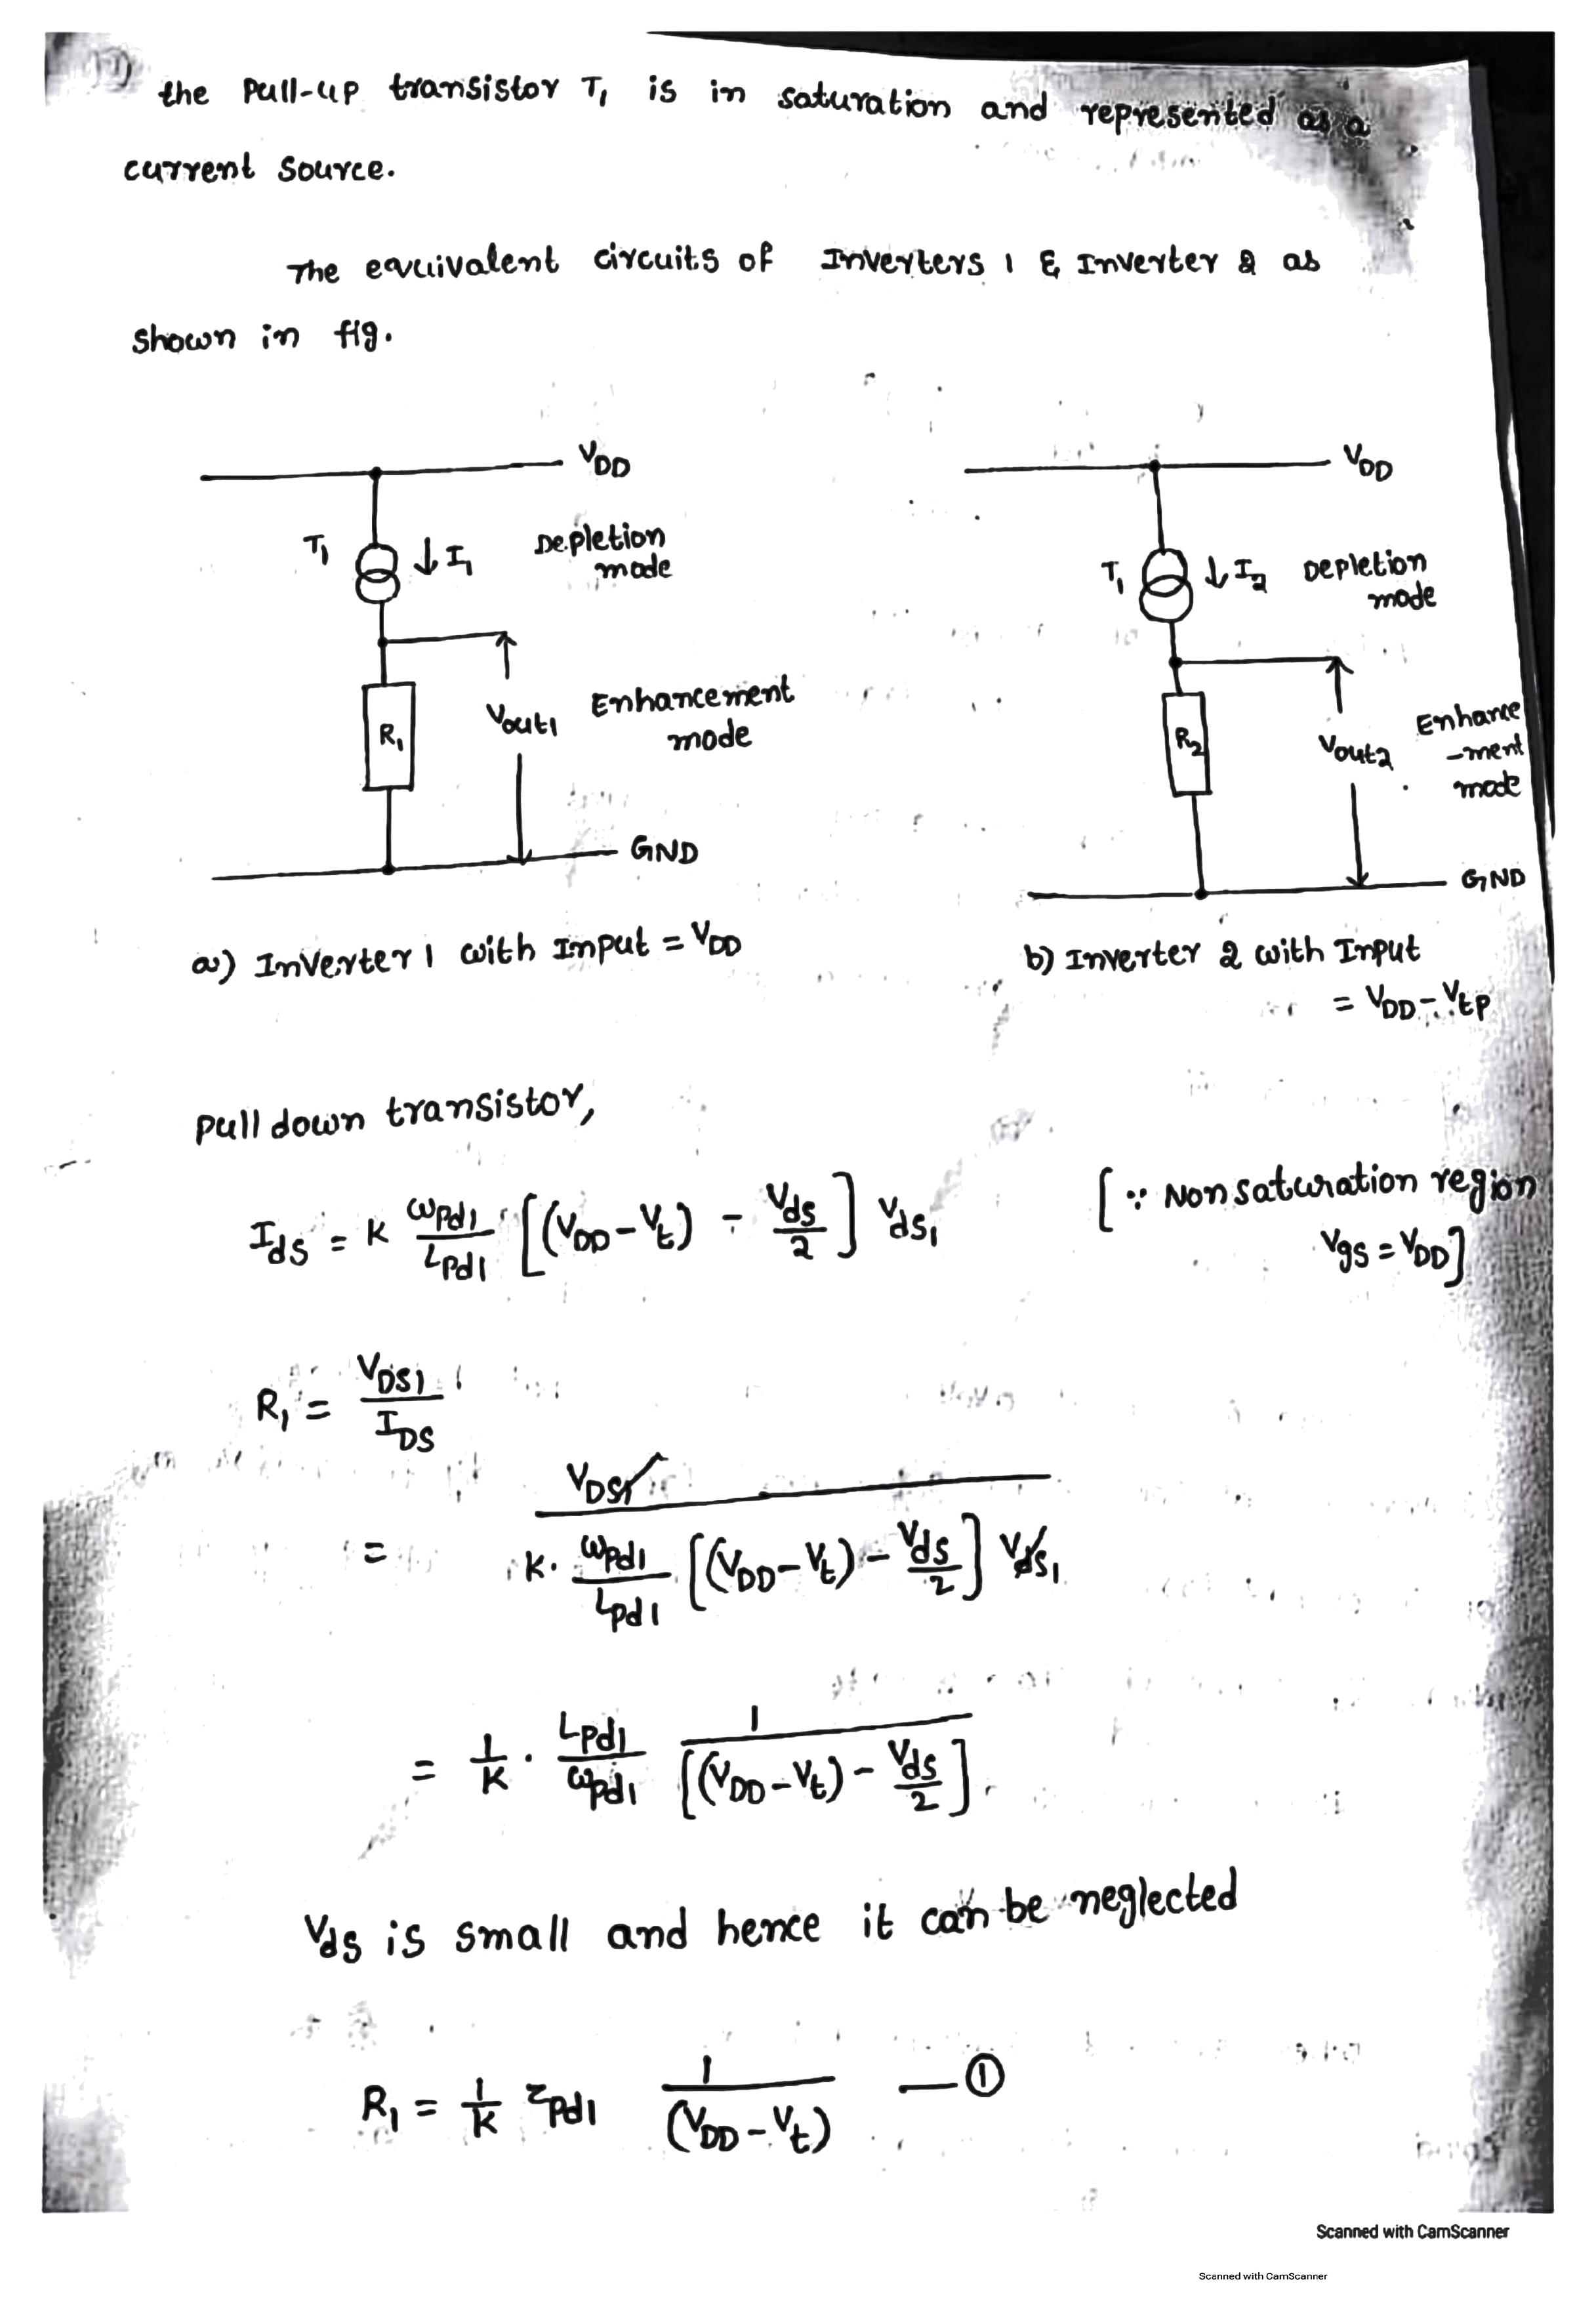 the Pull-up transistor T₁ is in saturation and represented as a
current source.
The equivalent circuits of Inverters 1 & Inverter 2 as
shown in fig.
V_DD
T₁ ↓ I₁ Depletion
mode
R₁ Vout1 Enhancement
mode
GND
a) Inverter 1 with Input = V_DD
V_DD
T₁ ↓ I₂ Depletion
mode
R₂ Vout2 Enhance
-ment
mode
GND
b) Inverter 2 with Input
= V_DD - V_tp
Pull down transistor,
I_ds = K ω_pd1/L_pd1 [(V_DD - V_t) - V_ds/2] V_ds₁ [∵ Non saturation region
V_gs = V_DD]
R₁ = V_DS1/I_DS
= V_DS1 / K. ω_pd1/L_pd1 [(V_DD - V_t) - V_ds/2] V_ds₁
= 1/K . L_pd1/ω_pd1 1/[(V_DD - V_t) - V_ds/2]
V_ds is small and hence it can be neglected
R₁ = 1/K Z_pd1 1/(V_DD - V_t) — ①
Scanned with CamScanner
Scanned with CamScanner